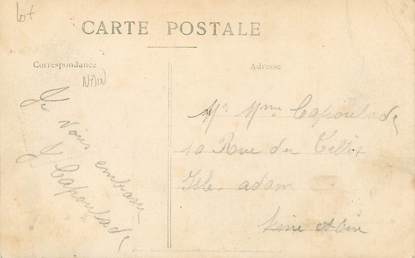 Lot
CARTE POSTALE
Correspondance
Adresse
Je Vous embrasse
J Capoulade
Mr Mme Capoulade
10 Rue du
Isle adam
Seine et Oise